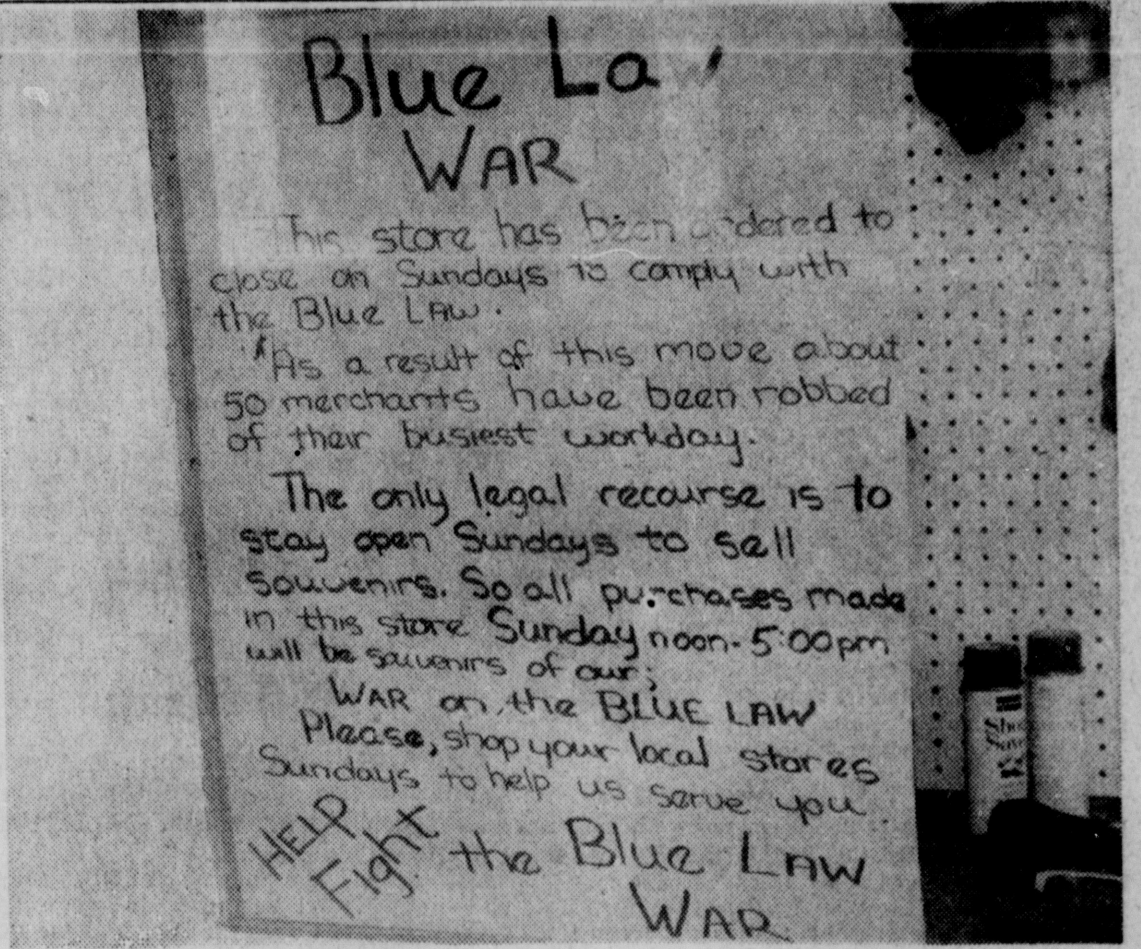 Blue Law
WAR
This store has been ordered to
close on Sundays to comply with
the Blue LAW.
As a result of this move about
50 merchants have been robbed
of their busiest workday.
The only legal recourse is to
stay open Sundays to sell
souvenirs. So all purchases made
in this store Sunday noon-5:00pm
will be souvenirs of our;
WAR on the BLUE LAW
Please, shop your local stores
Sundays to help us serve you.
HELP
Fight the Blue LAW
WAR